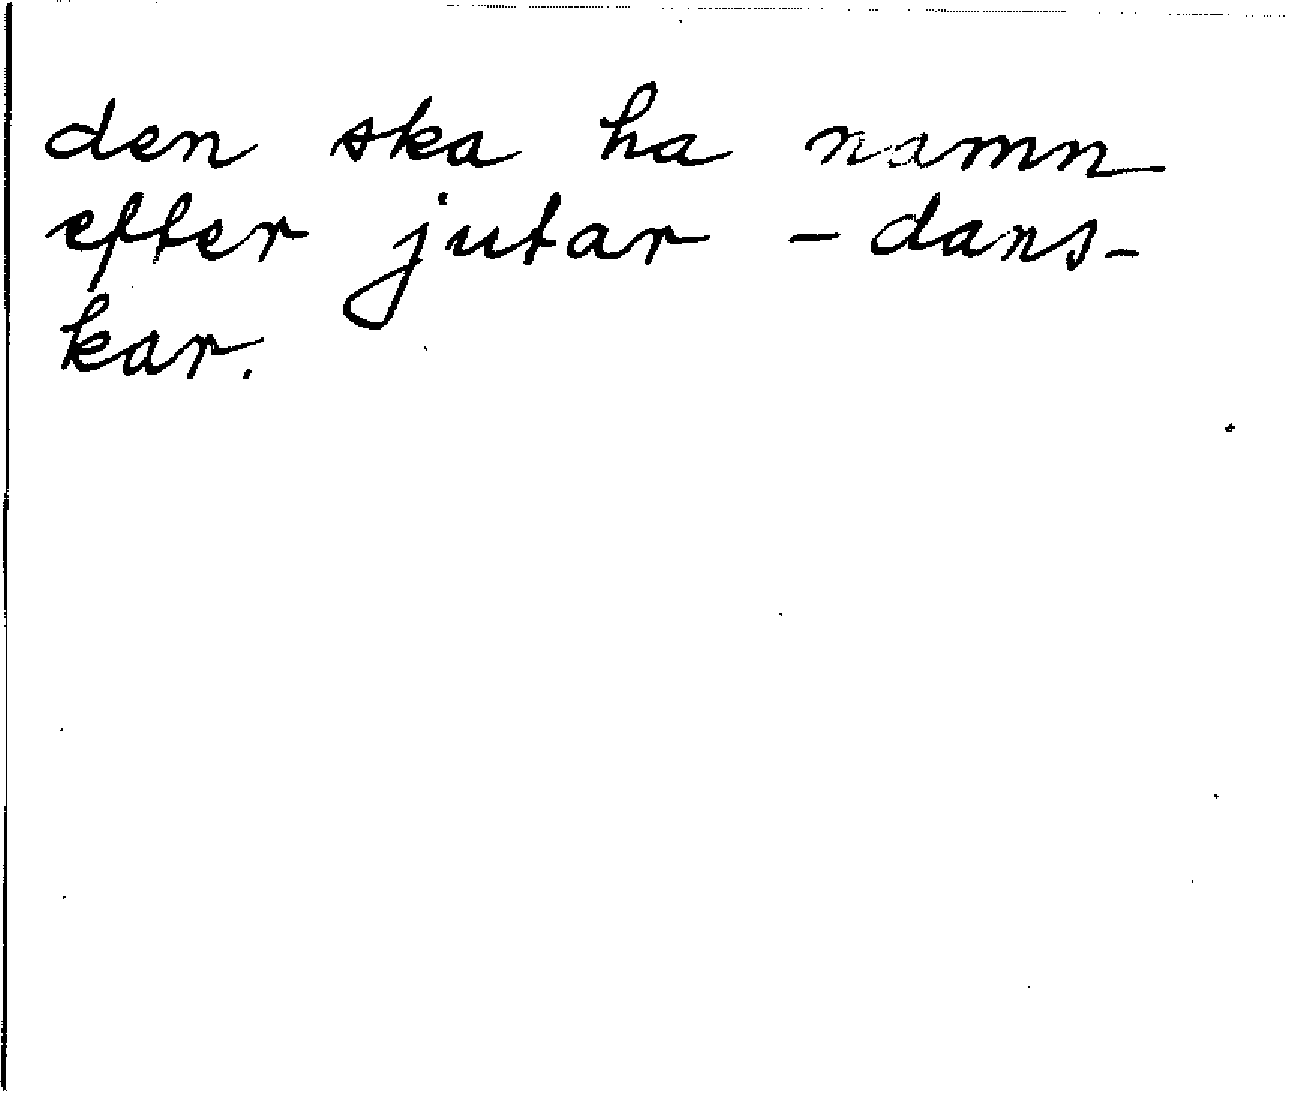 den ska ha namn
efter jutar – dans-
kar.